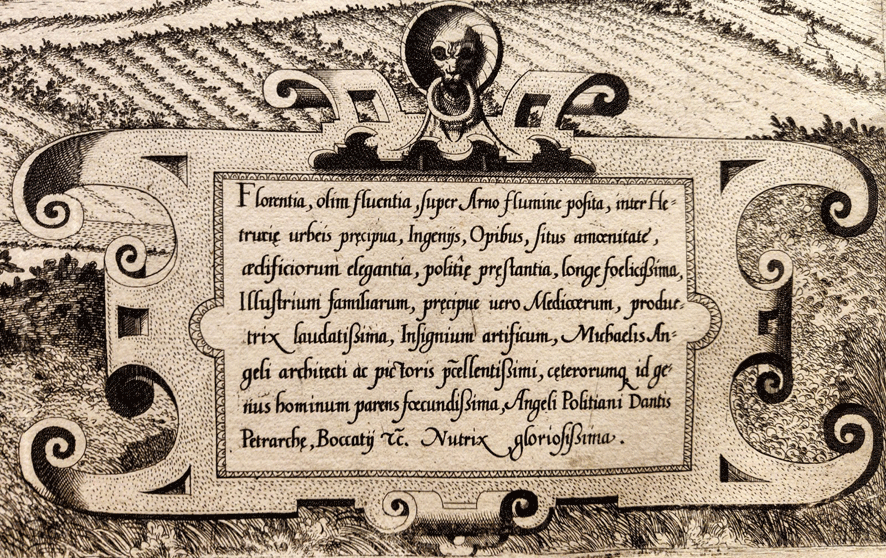 Florentia, olim fluentia, super Arno flumine posita, inter He-
trurię urbeis pręcipua, Ingenijs, Opibus, situs amœnitate,
ædificiorum elegantia, politię pręstantia, longe foelicissima,
Illustrium familiarum, pręcipue uero Mediceerum, produc-
trix laudatissima, Insignium artificum, Michaelis An-
geli architecti ac pictoris p̄cellentissimi, cęterorumq id ge-
nus hominum parens fœcundissima, Angeli Politiani Dantis
Petrarchę, Boccatij &c. Nutrix gloriosissima.